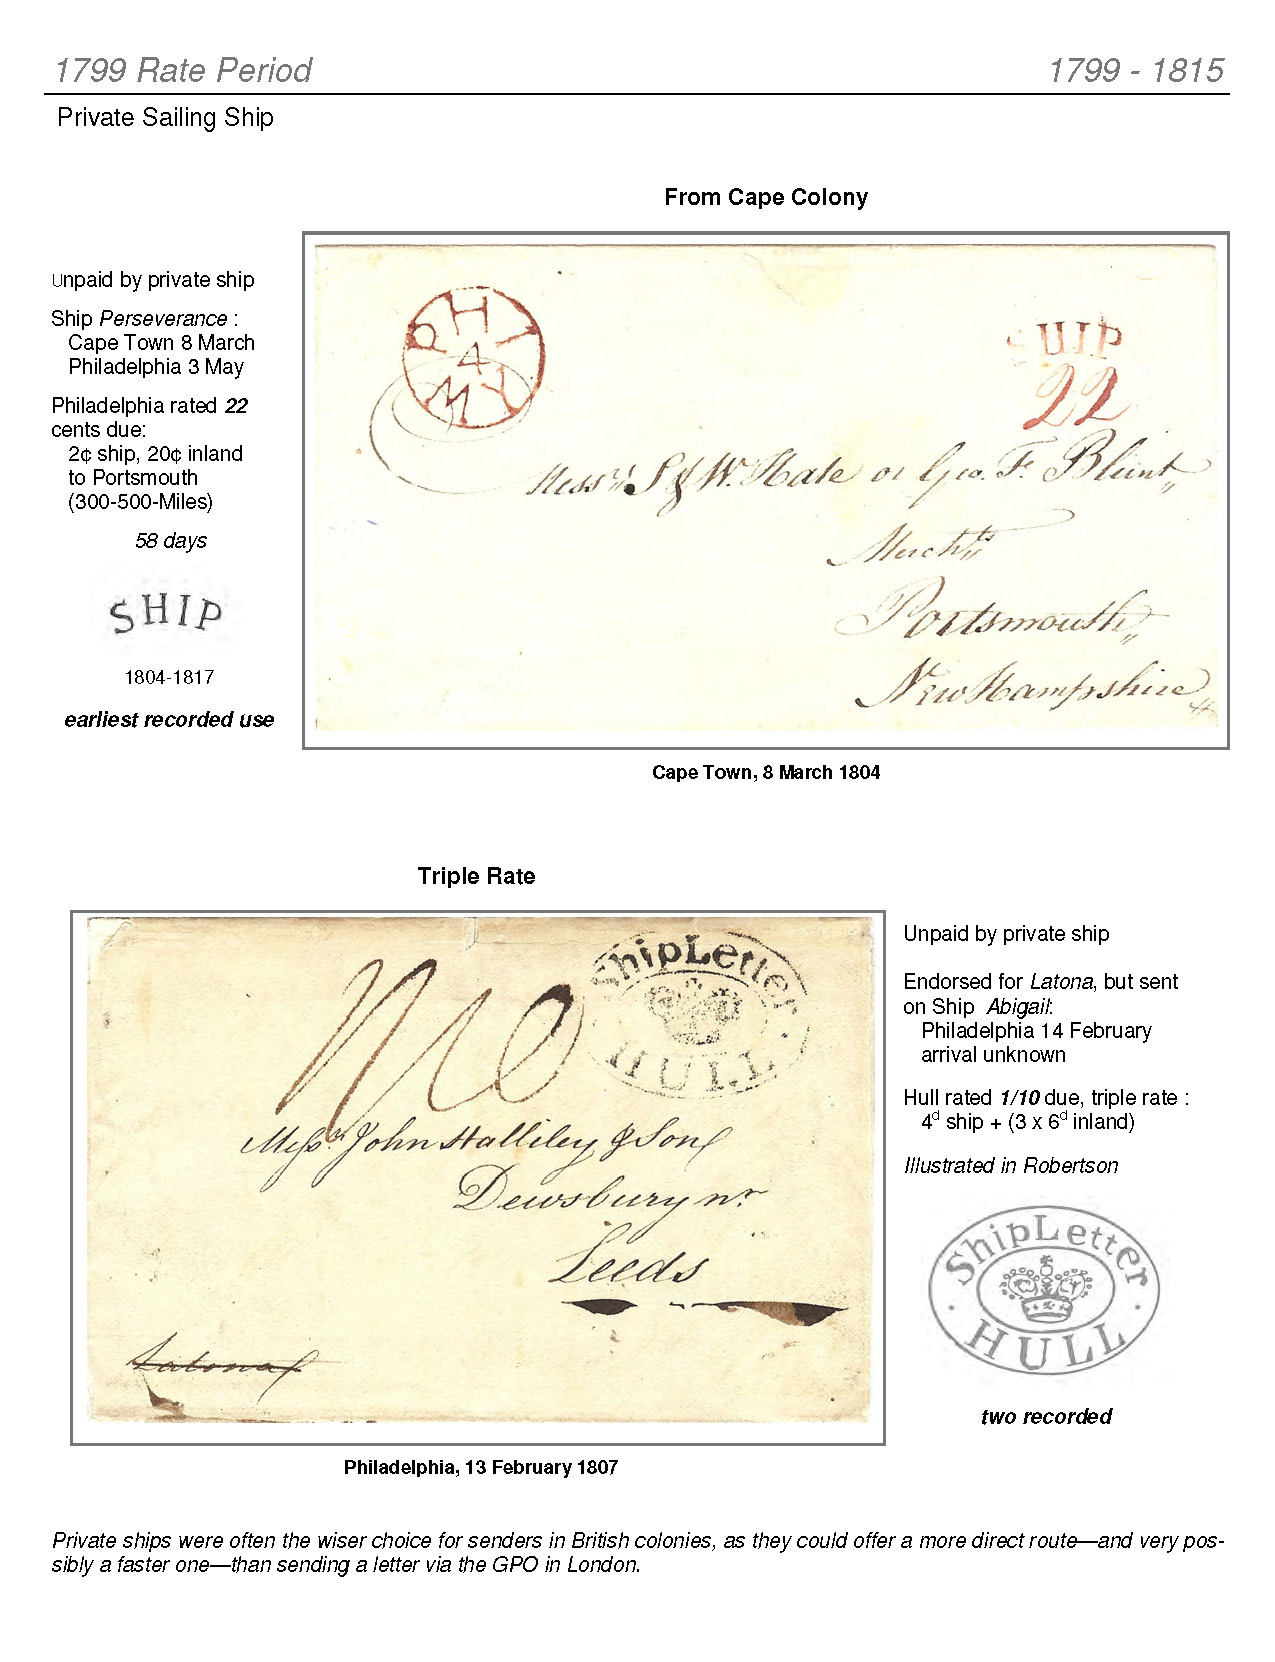 1799 Rate Period 1799 - 1815
Private Sailing Ship
From Cape Colony
Unpaid by private ship
Ship Perseverance :
Cape Town 8 March
Philadelphia 3 May
Philadelphia rated 22
cents due:
2¢ ship, 20¢ inland
to Portsmouth
(300-500-Miles)
58 days
SHIP
1804-1817
earliest recorded use
PHI
4
MY
SHIP
22
Messrs. S & W. Hale or Geo. F. Blunt
Merchts
Portsmouth
New Hampshire
Cape Town, 8 March 1804
Triple Rate
Ship Letter
HULL
1/10
Messrs. John Halliley & Son
Dewsbury nr
Leeds
Latona
Philadelphia, 13 February 1807
Unpaid by private ship
Endorsed for Latona, but sent
on Ship Abigail:
Philadelphia 14 February
arrival unknown
Hull rated 1/10 due, triple rate :
4d ship + (3 x 6d inland)
Illustrated in Robertson
Ship Letter
HULL
two recorded
Private ships were often the wiser choice for senders in British colonies, as they could offer a more direct route—and very pos-
sibly a faster one—than sending a letter via the GPO in London.